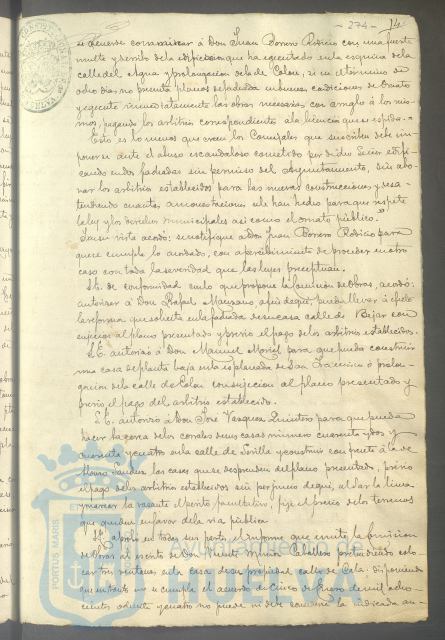 - 274 - 14
se acuerde conminar á Don Juan Borrero Rodicio con una fuerte
multa y derribo de la edificacion que ha egecutado en la esquina de la
calle del Agua y prolongacion de la de Colon, si en el termino de
ocho dias no presenta planos de fachada en buenas condiciones de Ornato
y egecute inmediatamente las obras necesarias con arreglo á los mis-
mos, pagando los arbitrios correspondientes á la licencia que se espida.
Esto es lo menos que creen los Concejales que suscriben debe im-
ponerse ante el abuso escandaloso cometido por dicho Señor edifi-
cando en dos fachadas sin permiso del Ayuntamiento, sin abo-
nar los arbitrios establecidos para las nuevas construcciones y desa-
tendiendo cuantas amonestaciones se le han hecho para que respete
la ley y los derechos municipales asi como el ornato público."
En su vista acordó: se notifique á Don Juan Borrero Rodicio para
que cumpla lo acordado, con apercibimiento de proceder en otro
caso con toda la severidad que las leyes preceptuan.
S.E. de conformidad con lo que propone la Comision de Obras, acordó:
autorizar á Don Rafael Manzano para que pueda llevar á efecto
la reforma que solicita en la fachada de su casa calle de Bejar con
sujecion al plano presentado y previo el pago de los arbitrios establecidos.
S.E. autorizó á Don Manuel Moriel para que pueda construir
una casa de planta baja en la esplanada de San Francisco ó prolon-
gacion de la calle de Colon con sujecion al plano presentado y
previo el pago del arbitrio establecido.
S.E. autorizó á Don José Vazquez Quintero para que pueda
hacer la cerca de los corrales de sus casas numero cuarenta y dos y
cuarenta y cuatro en la calle de Sevilla y construir con frente á la de
las casas que se desprenden del plano presentado, previo
el pago de los arbitrios establecidos sin perjuicio de que, al dar la linea
y marcar la rasante el perito facultativo, fije el precio de los terrenos
que queden en favor de la via pública.
S.E. aprobó en todas sus partes el informe que emite la Comision
de Obras al escrito de Don Vicente Muñoz Caballero pretendiendo colo-
car tres ventanas en la casa de su propiedad calle de Cala: disponiendo
que en tanto no se cumpla el acuerdo de cinco de Enero de mil ocho-
cientos ochenta y cuatro no puede ni debe concederse la indicada au-
PORTUS MARIS
Ayuntamiento de
HUELVA